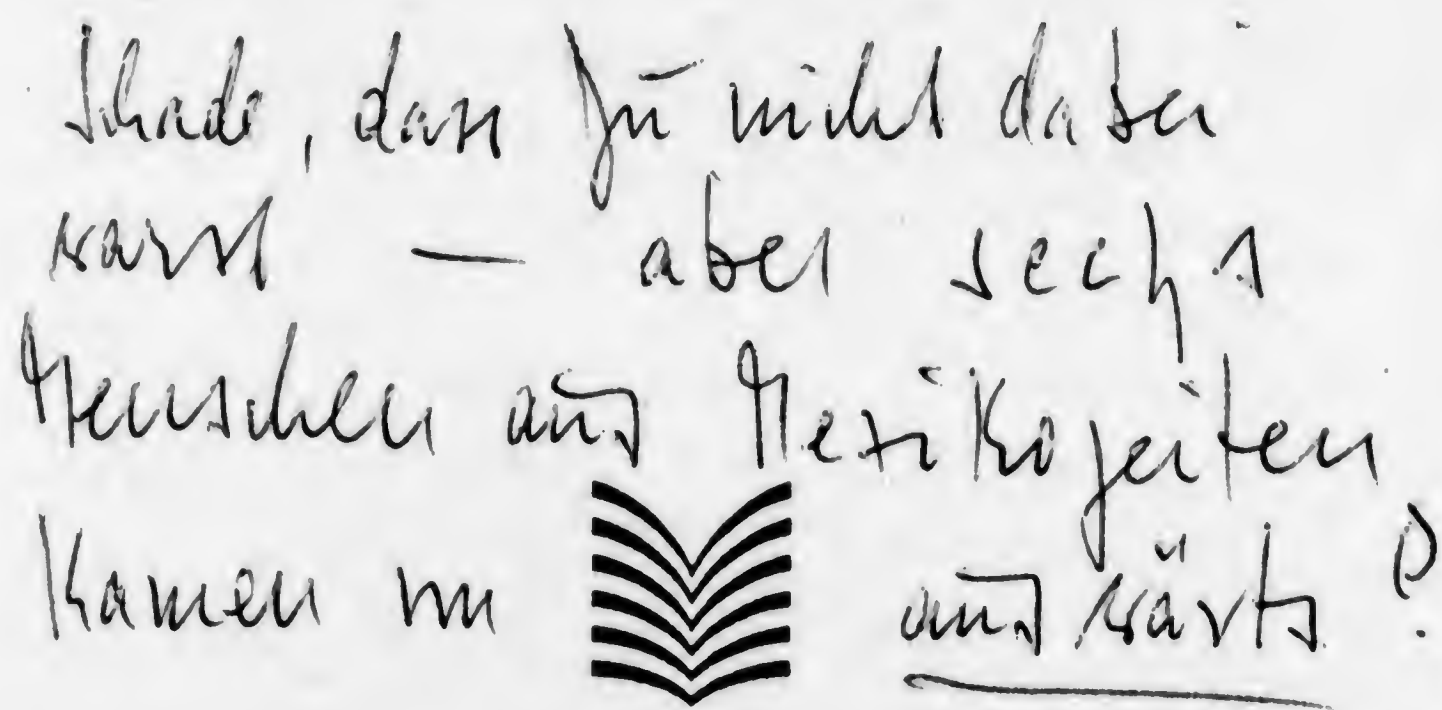 Schade, dass Du nicht dabei
warst — aber sechs
Menschen aus Mexikozeiten
kamen von auswärts!